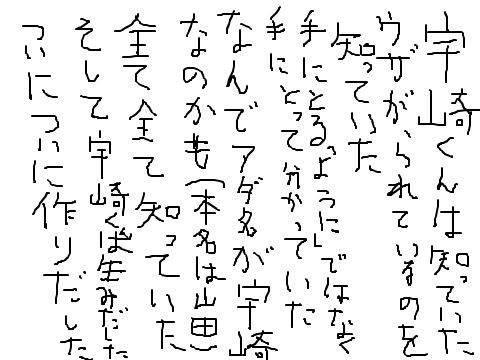 宇崎くんは知っていた
ウザがられているのを
知っていた
手にとる「ように」ではなく
手にとって分かっていた
なんでアダ名が宇崎
なのかも（本名は山思
全て全て知っていた
そして宇崎くんは生みだした
ついについに作りだした